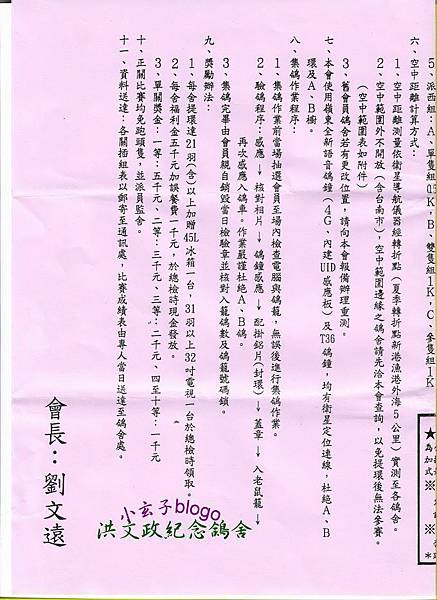 5、派西組：A、單隻組05K，B、雙隻組1K，C、參隻組1K
六、空中距離計算方式：
1、空中距離測量依衛星導航儀器經轉折點（夏季轉折點新港漁港外海5公里）實測至各鴿舍。
2、空中範圍外不開放（含台南市），空中範圍邊緣之鴿舍請先洽本會查詢，以免提環後無法參賽。
（空中範圍表如附件）
3、舊會員鴿舍若有更改位置，請向本會報備辦理重測。
七、本會使用嶺東全新語音鴿鐘（4G、內建UID感應板）及T36鴿鐘，均有衛星定位連線，杜絕A、B
環及A、B櫥。
八、集鴿作業程序：
1、集鴿作業前當場抽選會員至場內檢查電腦與鴿籠，無誤後進行集鴿作業。
2、驗鴿程序：感應→核對相片→鴿鐘感應→配掛鋁片(封環)→蓋章→入老鼠籠→
再次感應入鴿車。作業嚴謹杜絕A、B鴿。
3、集鴿完畢由會員親自銷毀當日檢驗章並核對入籠鴿數及鴿籠號碼鎖。
九、獎勵辦法：
1、每舍提環達21羽(含)以上加贈45L冰箱一台，31羽以上32吋電視一台於總檢時領取。
2、每舍福利金五千元加誤餐費一千元，於總檢時現金發放。
3、單關獎金：一等：五千元、二等：三千元、三等：二千元、四至十等：一千元
十、正關比賽均免跑頭隻，並派員監舍。
十一、資料送達：各關插組表以郵寄至通訊處，比賽成績表由專人當日送達至鴿舍處。
會長：劉文遠
★
為
加
式
※
※
＊
小玄子blogo
洪文政紀念鴿舍